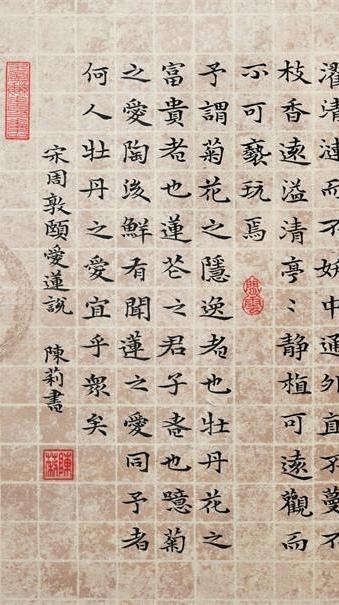 濯清漣而不妖中通外直不蔓不
枝香遠溢清亭〻静植可遠觀而
不可褻玩焉
予謂菊花之隱逸者也牡丹花之
富貴者也蓮花之君子者也噫菊
之愛陶後鮮有聞蓮之愛同予者
何人牡丹之愛宜乎眾矣
宋周敦頤愛蓮說 陳莉書
陳莉